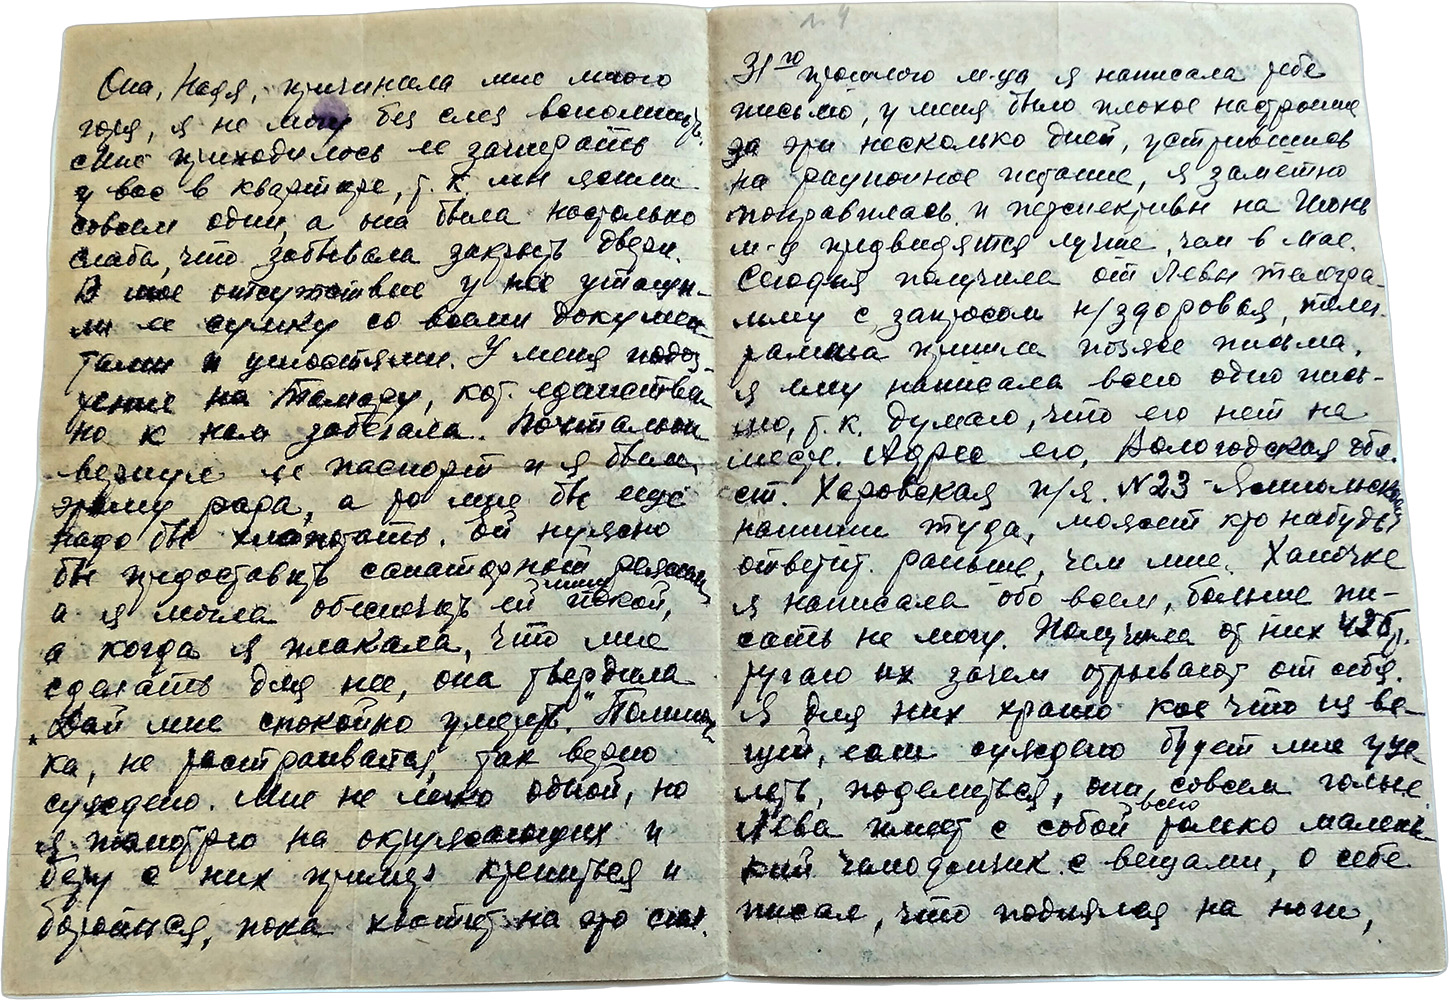 Она, Надя, причинила мне много
горя, я не могу без слез вспоминать.
Мне приходилось ее запирать
у вас в квартире, т. к. мы жили
совсем одни, а она была настолько
слаба, что забывала закрыть двери.
В мое отсутствие у нее утащи-
ли ее сумку со всеми докумен-
тами и ценностями. У меня подоз-
рение на Тамару, кот. единствен-
но к нам забегала. Почтальон
вернул ее паспорт и я была
этому рада, а то мне бы еще
надо бы хлопотать. Ей нужно
бы предоставить санаторный режим,
а я могла обеспечить ей лишь покой,
а когда я плакала, что мне
сделать для нее, она твердила
„Дай мне спокойно умереть." Полиноч-
ка, не расстраивайся, так верно
суждено. Мне не легко одной, но
я смотрю на окружающих и
беру с них пример крепиться и
бороться, пока хватит на это сил.
л. 4
31го прошлого м-ца я написала тебе
письмо, у меня было плохое настроение
за эти несколько дней, устроившись
на рационное питание, я заметно
поправилась и перспективы на Июнь
м-ц предвидятся лучше, чем в Мае.
Сегодня получила от Левы телегра-
мму с запросом н/здоровья, телег-
рамма пришла позже письма,
я ему написала всего одно пись-
мо, т. к. думаю, что его нет на
месте. Адрес его, Вологодская обл.
ст. Харовская п/я. N23
напиши туда, может кто нибудь
ответит раньше, чем мне. Ханочке
я написала обо всем, больше пи-
сать не могу. Получила от них 425р.
ругаю их зачем отрывают от себя.
Я для них храню кое что из ве-
щей, если суждено будет мне уце-
леть, поделиться, они совсем голые.
Лева имеет с собой всего только малень-
кий чемоданчик с вещами, о себе
писал, что поднялся на ноги,